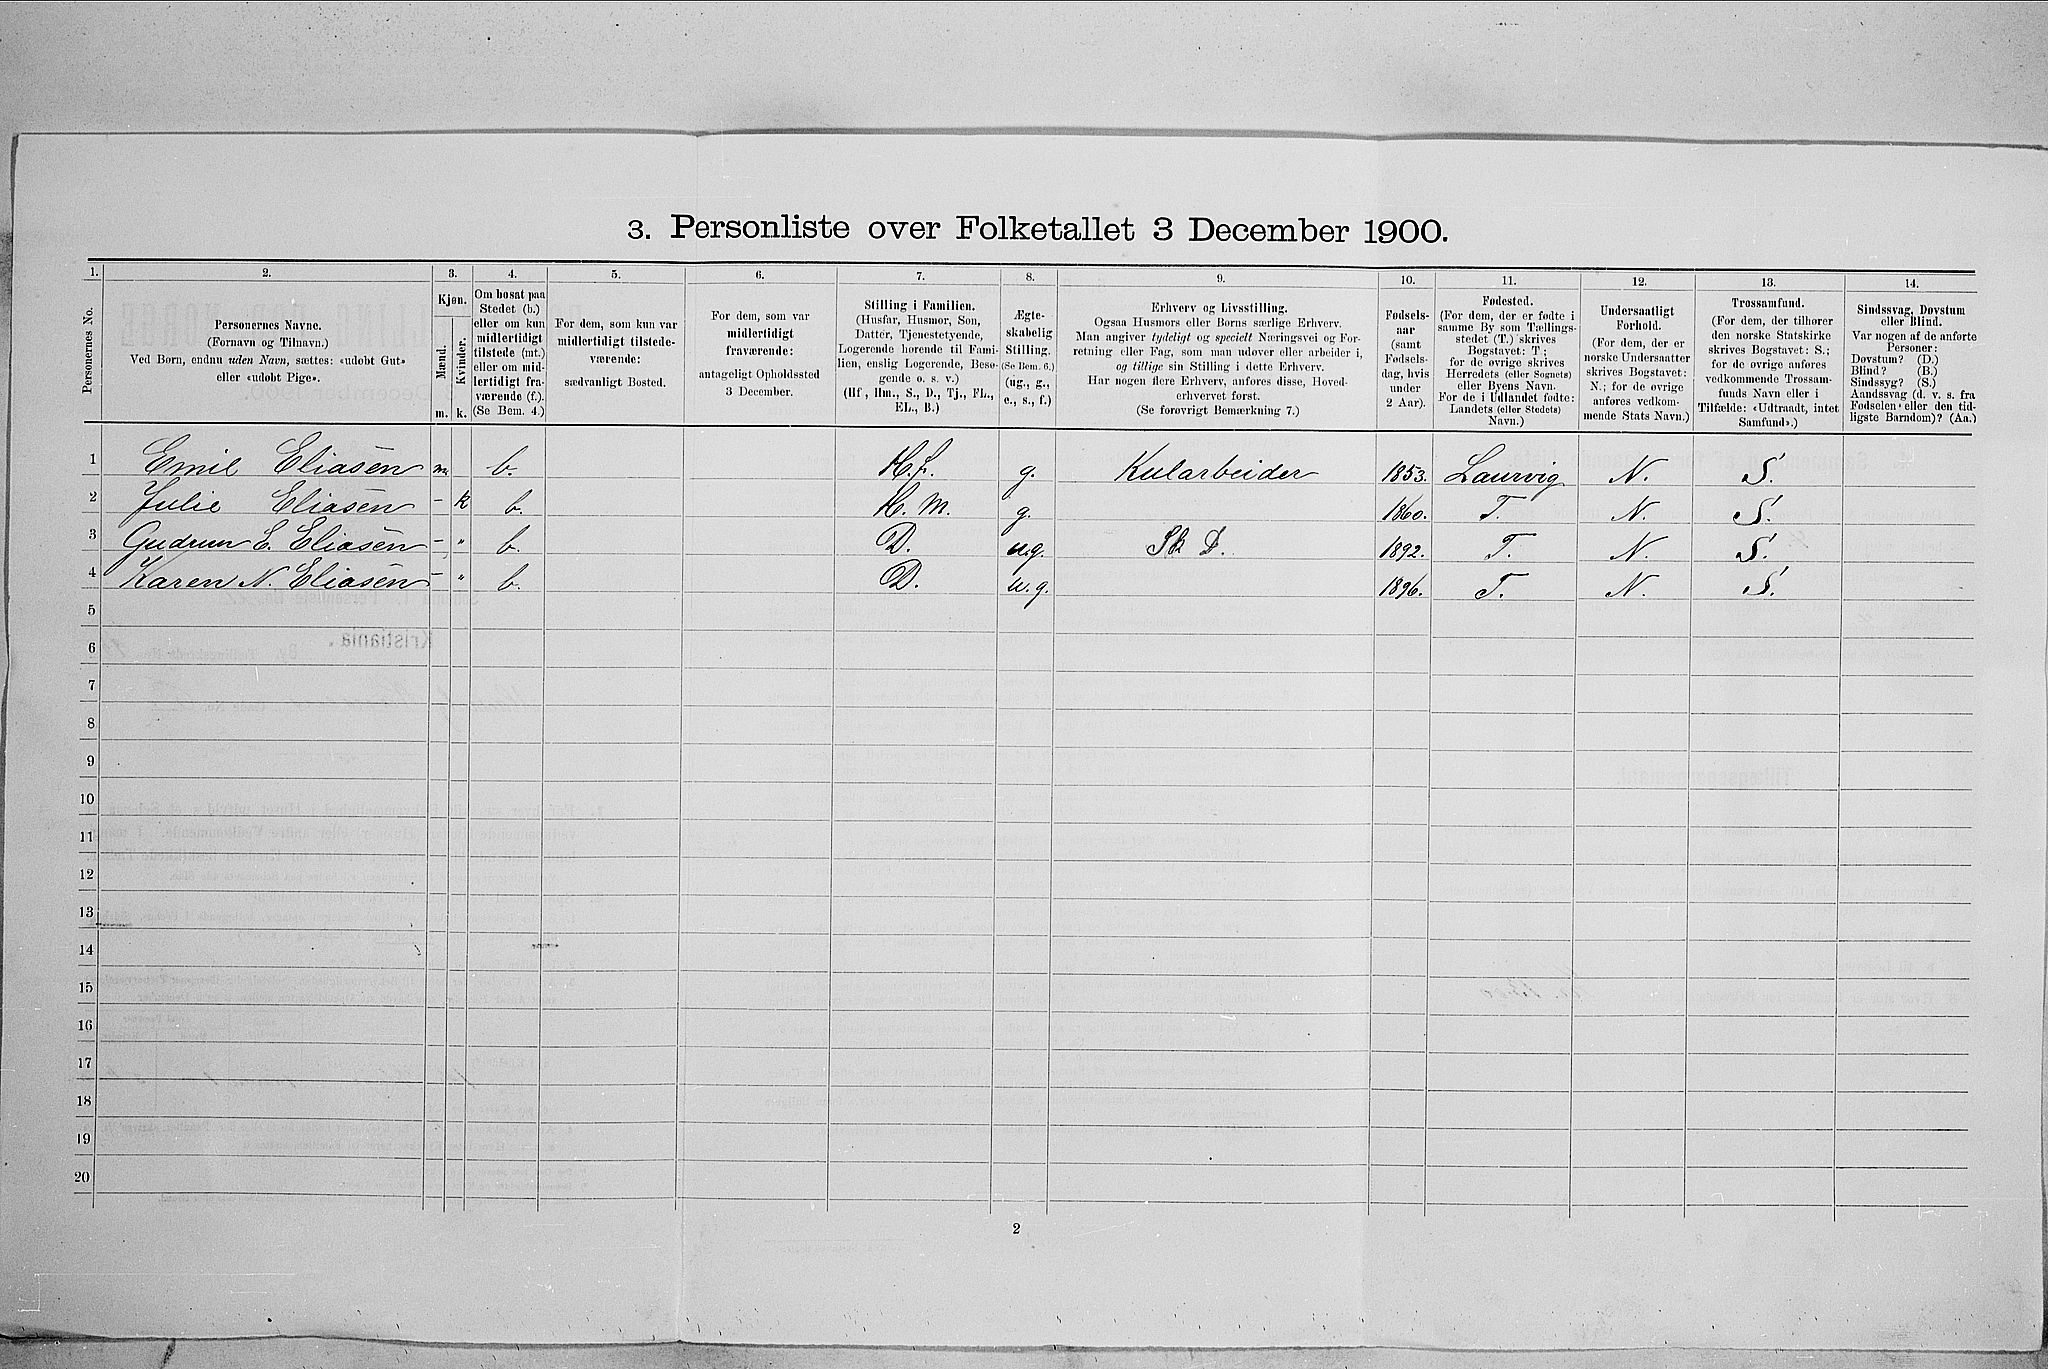 3. Personliste over Folketallet 3 December 1900.
1. 2. 3. 4. 5. 6. 7. 8. 9. 10. 11. 12. 13. 14.
Personernes No.
Personernes Navne.
(Fornavn og Tilnavn.)
Ved Børn, endnu uden Navn, sættes: «udøbt Gut»
eller «udøbt Pige».
Kjøn.
Mænd.
Kvinder.
m. k.
Om bosat paa
Stedet (b.)
eller om kun
midlertidigt
tilstede (mt.)
eller om mid-
lertidigt fra-
værende (f.).
(Se Bem. 4.)
For dem, som kun var
midlertidigt tilstede-
værende:
sædvanligt Bosted.
For dem, som var
midlertidigt
fraværende:
antageligt Opholdssted
3 December.
Stilling i Familien.
(Husfar, Husmor, Søn,
Datter, Tjenestetyende,
Logerende hørende til Fami-
lien, enslig Logerende, Besø-
gende o. s. v.)
(Hf, Hm., S., D., Tj., FL.,
EL., B.)
Ægte-
skabelig
Stilling.
(Se Bem. 6.)
(ug., g.,
e., s., f.)
Erhverv og Livsstilling.
Ogsaa Husmors eller Børns særlige Erhverv.
Man angiver tydeligt og specielt Næringsvei og For-
retning eller Fag, som man udøver eller arbeider i,
og tillige sin Stilling i dette Erhverv.
Har nogen flere Erhverv, anføres disse, Hoved-
erhvervet først.
(Se forøvrigt Bemærkning 7.)
Fødsels-
aar
(samt
Fødsels-
dag, hvis
under
2 Aar).
Fødested.
(For dem, der er fødte i
samme By som Tællings-
stedet (T.) skrives
Bogstavet: T;
for de øvrige skrives
Herredets (eller Sognets)
eller Byens Navn.
For de i Udlandet fødte:
Landets (eller Stedets)
Navn.)
Undersaatligt
Forhold.
(For dem, der er
norske Undersaatter
skrives Bogstavet:
N.; for de øvrige
anføres vedkom-
mende Stats Navn.)
Trossamfund.
(For dem, der tilhører
den norske Statskirke
skrives Bogstavet: S.;
for de øvrige anføres
vedkommende Trossam-
funds Navn eller i
Tilfælde: «Udtraadt, intet
Samfund».)
Sindssvag, Døvstum
eller Blind.
Var nogen af de anførte
Personer:
Døvstum? (D.)
Blind? (B.)
Sindssyg? (S.)
Aandssvag (d. v. s. fra
Fødselen eller den tid-
ligste Barndom)? (Aa.)
1 Emil Eliasen m. b. H.f. g. Kularbeider 1853. Laurvig N. S.
2 Julie Eliasen - k b. H.m. g. 1860. T. N. S.
3 Gudrun E. Eliasen - " b. D. u.g. Sk D. 1892. T. N. S.
4 Karen N. Eliasen - " b. D. u.g. 1896. T. N. S.
5
6
7
8
9
10
11
12
13
14
15
16
17
18
19
20
2